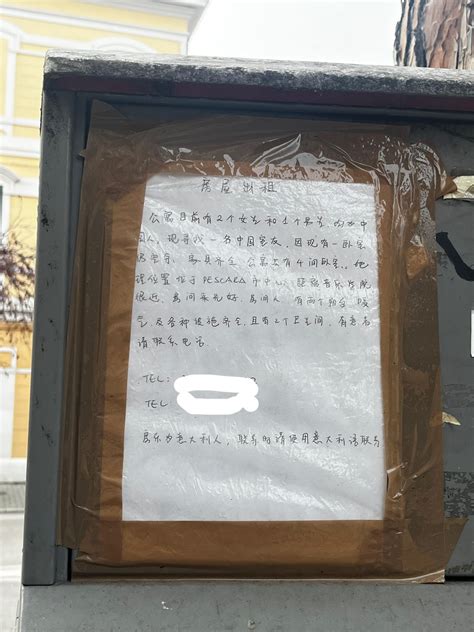 房屋出租
公寓目前有2个女生和1个男生 均为中
国人, 现寻找一名中国室友, 因现有一卧室
家具齐全 公寓共有4间卧室, 地
理位置位于PESCARA市中心, 距离音乐学院
很近, 房间采光好, 房间
气 及各种设施齐全, 且有2个卫生间, 有意者
请联系电话
TEL:
TEL
房东为意大利人, 联系时请使用意大利语联系